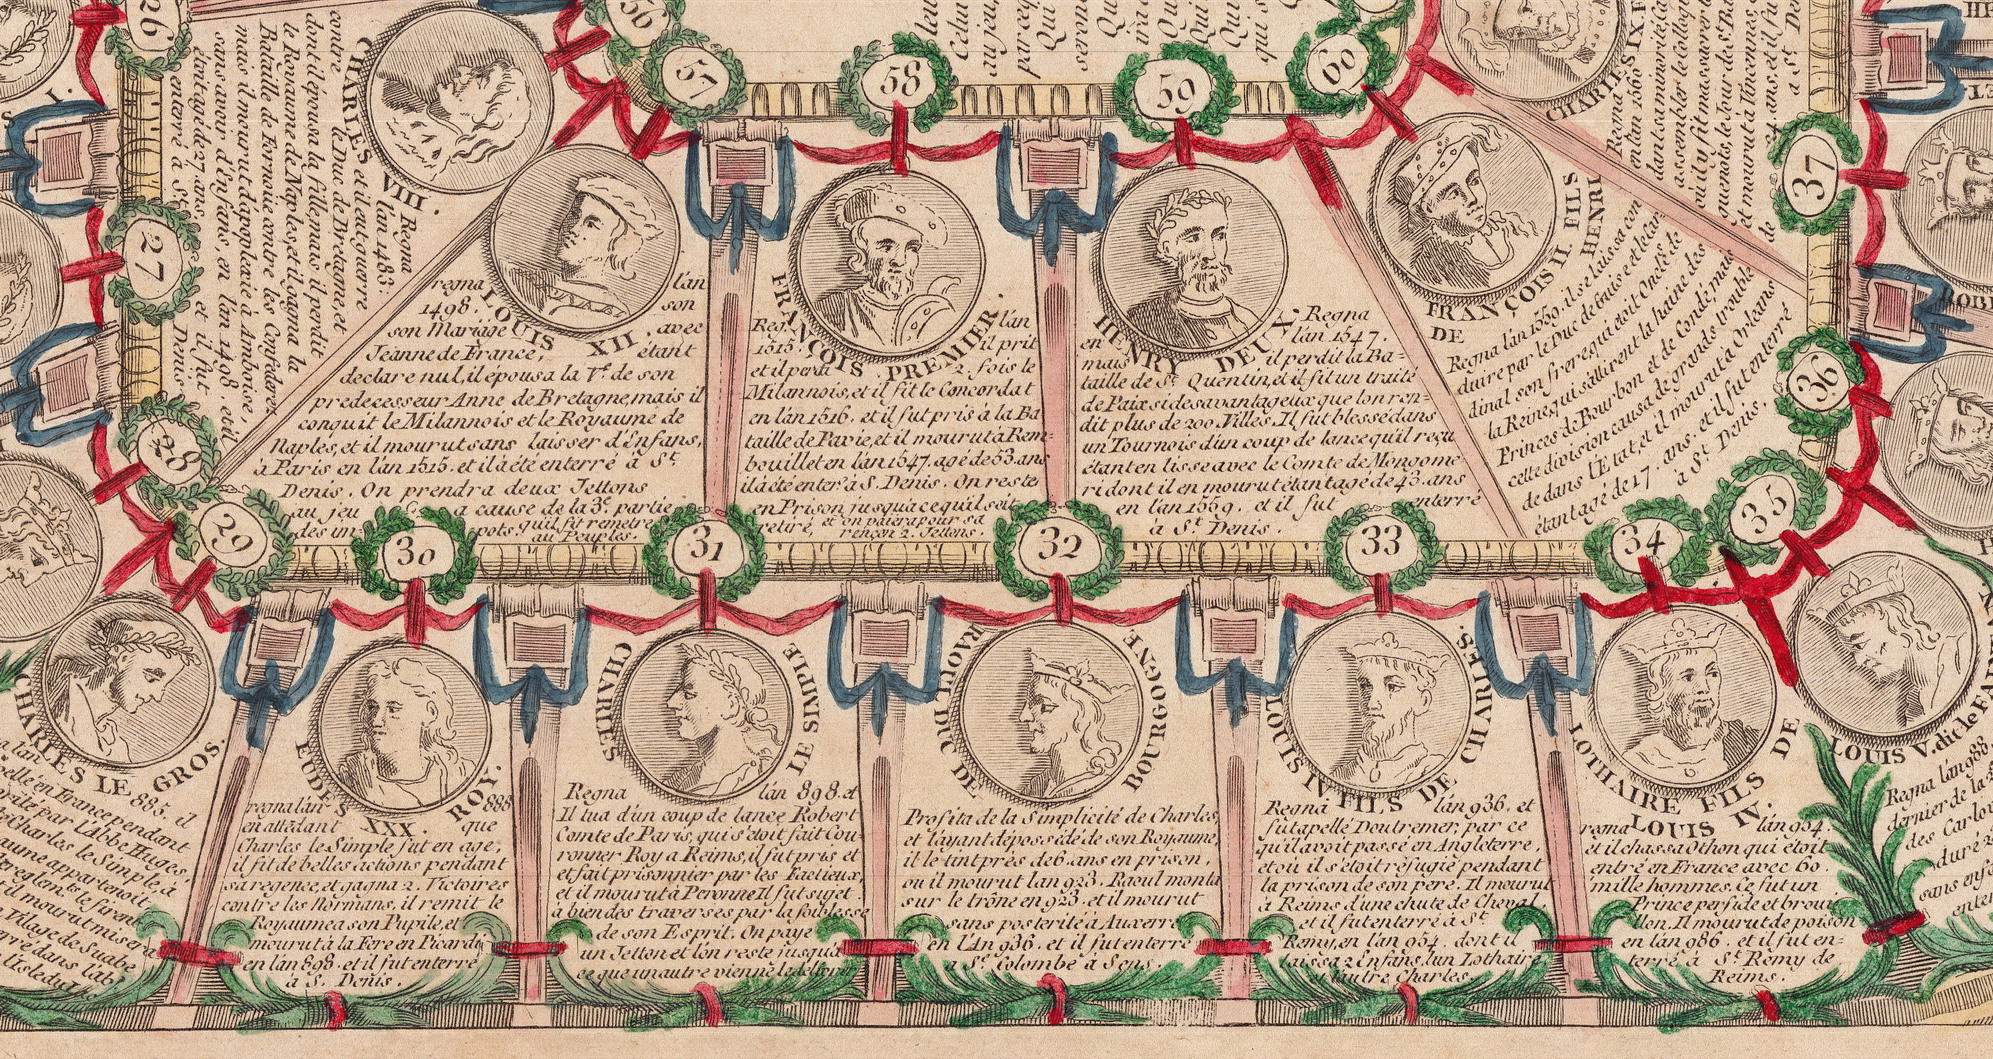 26
I.
CHARLES VIII.
Regna
l'an 1483.
et il eut guerre
le Duc de Bretagne, et
contre
dont il épousa la fille, mais il perdit
le Royaume de Naples, et il gagna la
Bataille de Fornoüe contre les Confederez
mais il mourut d'apoplexie à Amboise,
sans avoir d'enfans, en l'an 1498.
étant agé de 27 ans, et il fut
enterré à St. Denis
27
28
56
57
58
59
60
LOUIS XII.
regna l'an
1498. son
son Mariage avec
Jeanne de France, étant
declare nul, il épousa la Ve. de son
predecesseur Anne de Bretagne, mais il
conquit le Milannois et le Royaume de
Naples, et il mourut sans laisser d'énfans,
à Paris en l'an 1515. et il à été enterré à St.
Denis. On prendra deux Jettons
au jeu a cause de la 3e. partie
des impots qu'il fit remetre
au Peuples.
FRANÇOIS PREMIER.
Reg. l'an
1515. il prit
et il perdi 2. fois le
Milannois, et il fit le Concordat
en l'an 1516. et il fut pris à la Ba
taille de Pavie, et il mourut à Rem-
bouillet en l'an 1547. agé de 53. ans
il à été enter' à S. Denis. On reste
en Prison jusqu'à ce qu'il soit
retiré, et on paiera pour sa
rençon 2. Jettons.
HENRY DEUX.
Regna
en l'an 1547.
mais il perdit la Ba=
taille de St. Quentin, et il fit un traité
de Paix si desavantageux que l'on ren=
dit plus de 200 Villes. Il fut blessé dans
un Tournois d'un coup de lance qu'il reçu
étant en lisse avec le Comte de Mongome
ri dont il en mourut étant agé de 43. ans
en l'an 1559. et il fut enterré
à St. Denis.
FRANÇOIS II FILS
DE HENRI
Regna l'an 1559. il se laissa con
duire par le Duc de Guise et le Car-
dinal son frere qui étoit Oncle de
la Reine, qui s'attirent la haine des
Princes de Bourbon et de Condé, mais
cette division causa de grands trouble
de dans l'Etat, et il mourut à Orleans
étant agé de 17. ans. et il fut enterré
à St. Denis.
CHARLES IX F
Regna
en l'an 1560
dans sa minorité
37
36
35
34
33
32
31
30
29
CHARLES LE GROS.
l'an 885. il
en France pendant
par l'Abbe Huges,
Charles le Simple, à
appartenoit
il mourut miser a
Vilage de Suabe
EUDES XXX. ROY.
regna l'an 888
en attédant que
Charles le Simple fut en age,
il fit de belles actions pendant
sa regence, et gagna 2. Victoires
contre les Normans, il remit le
Royaume a son Pupile, et
mourut à la Fere en Picardi
en l'an 898. et il fut enterré
à S. Denis.
CHARLES LE SIMPLE
Regna l'an 898. et
Il tua d'un coup de lance Robert
Comte de Paris, qui s'étoit fait Cou-
ronner Roy a Reims, il fut pris et
et fait prisonnier par les Factieux
et il mourut à Peronne Il fut sujet
à bien des traverses par la foiblesse
de son Esprit. On paye
un Jetton et l'on reste jusqu'à
ce que un autre vienne le delivrer
RAOUL DUC DE BOURGOGNE
Profita de la Simplicité de Charles,
et l'ayant depossédé de son Royaume
il le tint près de 6. ans en prison,
ou il mourut l'an 923. Raoul monta
sur le trône en 923. et il mourut
sans posterité à Auxerre
en l'An 936. et il fut enterré
a Ste. Colombe à Sens.
LOUIS IV FILS DE CHARLES.
Regna l'an 936. et
fut apellé Doutremer, par ce
qu'il avoit passé en Angleterre,
et où il s'étoit réfugié pendant
la prison de son pere. Il mourut
à Reims d'une chute de Cheval
et il fut enterré à St.
Remy, en l'an 954. dont il
laissa 2 Enfans, l'un Lothaire
et l'autre Charles
LOTHAIRE FILS DE
LOUIS IV.
regna l'an 954.
et il chassa Othon qui étoit
entré en France avec 60.
mille hommes. Ce fut un
Prince perfide et brouil
lon. Il mourut de poison
en l'an 986. et il fut en=
terré à St. Remy de
Reims.
LOUIS V. dit le FAIN
Regna l'an 988
dernier de la 2
des Carlov
dure 2
sans enfa
enter